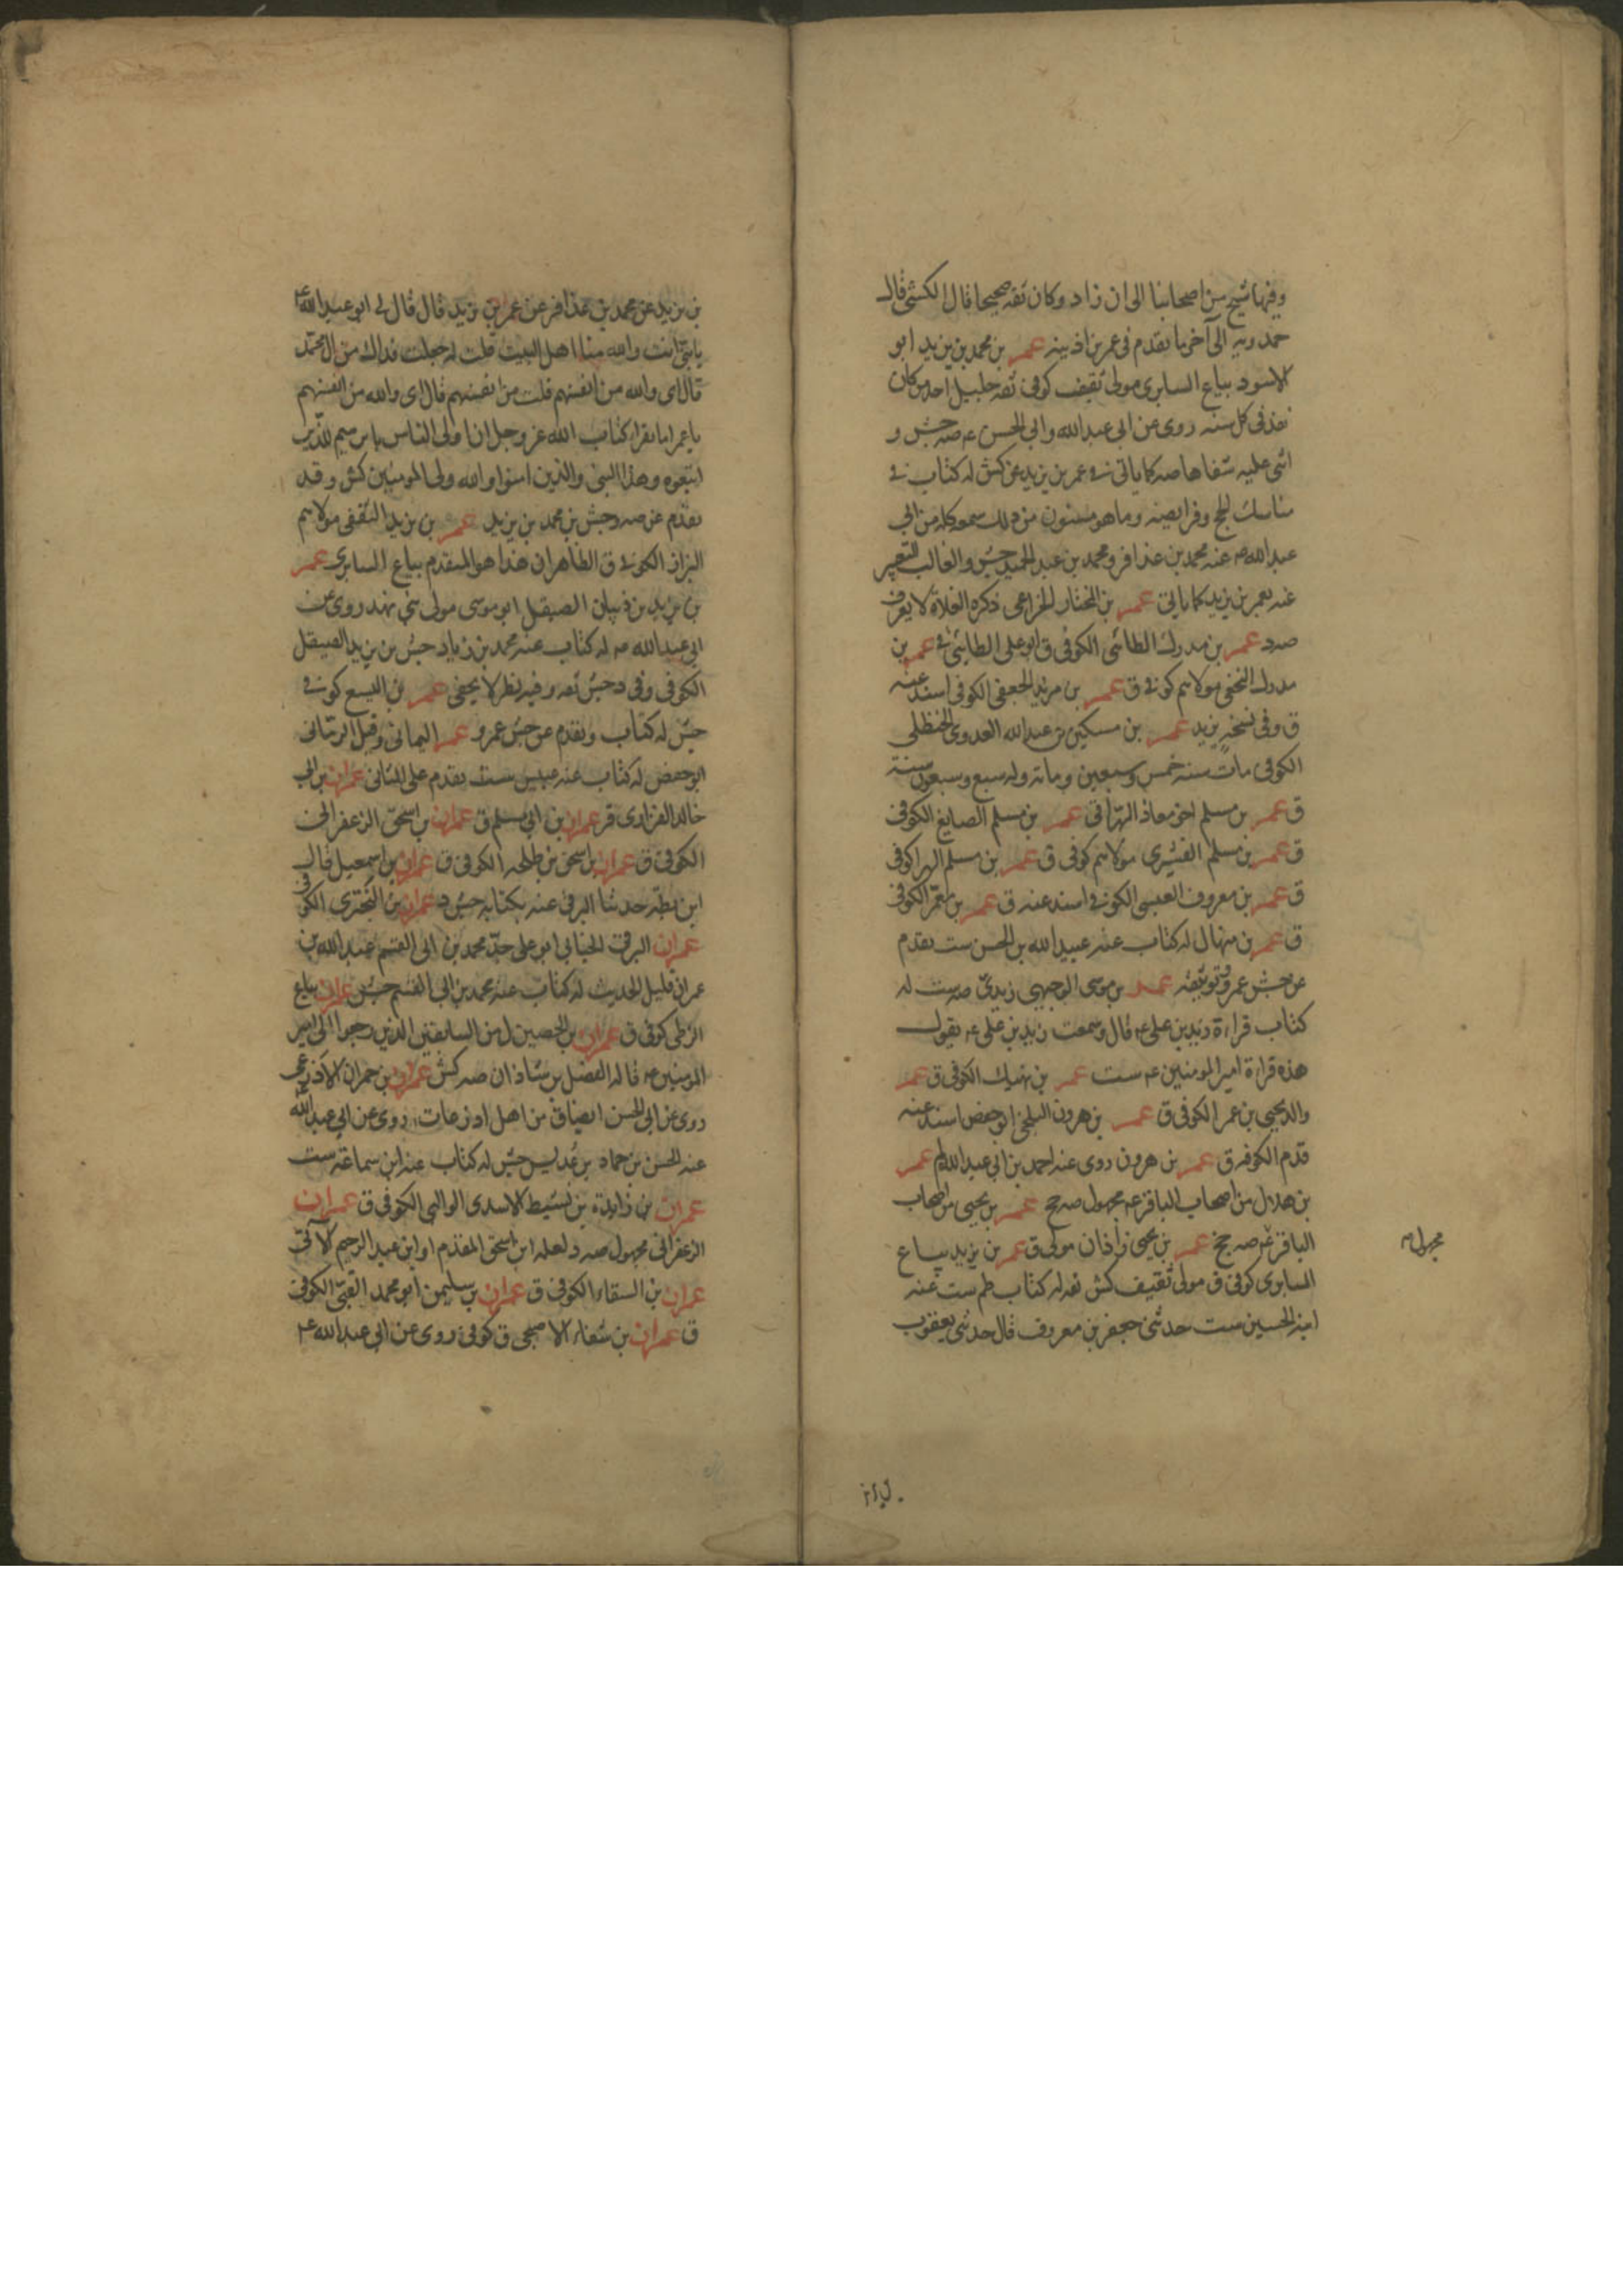 وفيها شيخ من اصحابنا الى ان زاد وكان ثقه صحيحا قال الكشي قال
حمدويه الى آخر ما تقدم فى عمر بن اذينه عمر بن محمد بن يزيد ابو
الاسود بياع السابرى مولى ثقيف كوفى ثقه جليل احد من كان
يفد فى كل سنه روى عن ابى عبد الله وابى الحسن ع صه جش و
اثنى عليه شفاها صه كما ياتى فى عمر بن يزيد عن كش له كتاب فى
مناسك الحج وفرايضه وما هو مسنون من ذلك سمعه كله من ابى
عبد الله ع عنه محمد بن عذافر ومحمد بن عبد الحميد جش والغالب التعبير
عنه بعمر بن يزيد كما ياتى عمر بن المختار الخزاعى ذكره الغلاة لا يعرف
صه د عمر بن مدرك الطائى الكوفى ق ابو على الطائى فى عمر بن
مدرك النخعى مولاهم كوفى ق عمر بن مرثد الجعفى الكوفى اسند عنه
ق وفى نسخة يزيد عمر بن مسكين بن عبد الله العدوى الحنظلى
الكوفى مات سنه خمس وسبعين ومائه وله سبع وسبعون سنة
ق عمر بن مسلم اخو معاذ الهراقى عمر بن مسلم الصايغ الكوفى
ق عمر بن مسلم القشيرى مولاهم كوفى ق عمر بن مسلم الهرا كوفى
ق عمر بن معروف العبسى الكوفى اسند عنه ق عمر بن معمر الكوفى
ق عمر بن منهال له كتاب عنه عبيد الله بن الحسن ست تقدم
عن جش عمرو وتوثيقه عمر بن موسى الوجيهى زيدى صه ست له
كتاب قراءة زيد بن على ع قال وسمعت زيد بن على ع يقول
هذه قراءة امير المومنين ع ست عمر بن نهيك الكوفى ق عمر
والد يحيى بن عمر الكوفى ق عمر بن هرون البلخى ابو حفص اسند عنه
قدم الكوفه ق عمر بن هرون روى عنه احمد بن ابى عبد الله لم عمر
بن هلال من اصحاب الباقر ع مجهول صه جخ عمر بن يحيى من اصحاب
الباقر ع صه جخ عمر بن يحيى زاذان مولى ق عمر بن يزيد بياع
مجهول م
السابرى كوفى ق مولى ثقيف كش ثقه له كتاب ظم ست عنه
ابنه الحسين ست حدثنى جعفر بن معروف قال حدثنى يعقوب
بن يزيد عن محمد بن عذافر عن عمر بن يزيد قال قال لى ابو عبد الله ع
يابنى انت والله منا اهل البيت قلت له جعلت فداك من ال محمد
قال اى والله من انفسهم قلت من انفسهم قال اى والله من انفسهم
يا عمر اما تقرا كتاب الله عز وجل ان اولى الناس بابرهيم للذين
اتبعوه وهذا النبى والذين امنوا والله ولى المومنين كش وقد
تقدم عن صه وجش بن محمد بن يزيد عمر بن يزيد الثقفى مولاهم
البزاز الكوفى ق الظاهر ان هذا هو المتقدم بياع السابرى عمر
بن يزيد بن ذبيان الصيقل ابو موسى مولى بنى نهد روى عن
ابى عبد الله ع له كتاب عنه محمد بن زياد جش بن يزيد الصيقل
الكوفى وفى د جش ثقه وفيه نظر لا يخفى عمر بن اليسع كوفى
جش له كتاب وتقدم عن جش عمرو عمر اليمانى وقيل الرمانى
ابو حفص له كتاب عنه عبيس ست تقدم على الثانى عمران بن ابى
خالد الفزارى قر عمران بن ابى مسلم ق عمران بن اسحق الزعفرانى
الكوفى ق عمران بن اسحق بن طلحه الكوفى ق عمران بن اسمعيل قال
ابن بطه حدثنا البرقى عنه بكتابه جش د عمران بن البخترى الكوفى
عمران البرقى الجنابى ابو على جد محمد بن ابى القسم عبيد الله بن
عمران قليل الحديث له كتاب عنه محمد بن ابى القسم جش عمران بياع
الزطى كوفى ق عمران بن الحصين ل من السابقين الذين رجعوا الى امير
المومنين ع قاله الفضل بن شاذان صه كش عمران بن حمران الاذرعى
روى عن ابى الحسن ايضا ق من اهل اذرعات روى عن ابى عبد الله ع
عنه الحسن بن حماد بن عديس جش له كتاب عنه ابن سماعة ست
عمران بن زايدة بن نشيط الاسدى الوالبى الكوفى ق عمران
الزعفرانى مجهول صه د لعله ابن اسحق المقدم او ابن عبد الرحيم الآتى
عمران بن السقاء الكوفى ق عمران بن سليمن ابو محمد القبى الكوفى
ق عمران بن شفاء الاصبحى ق كوفى روى عن ابى عبد الله ع